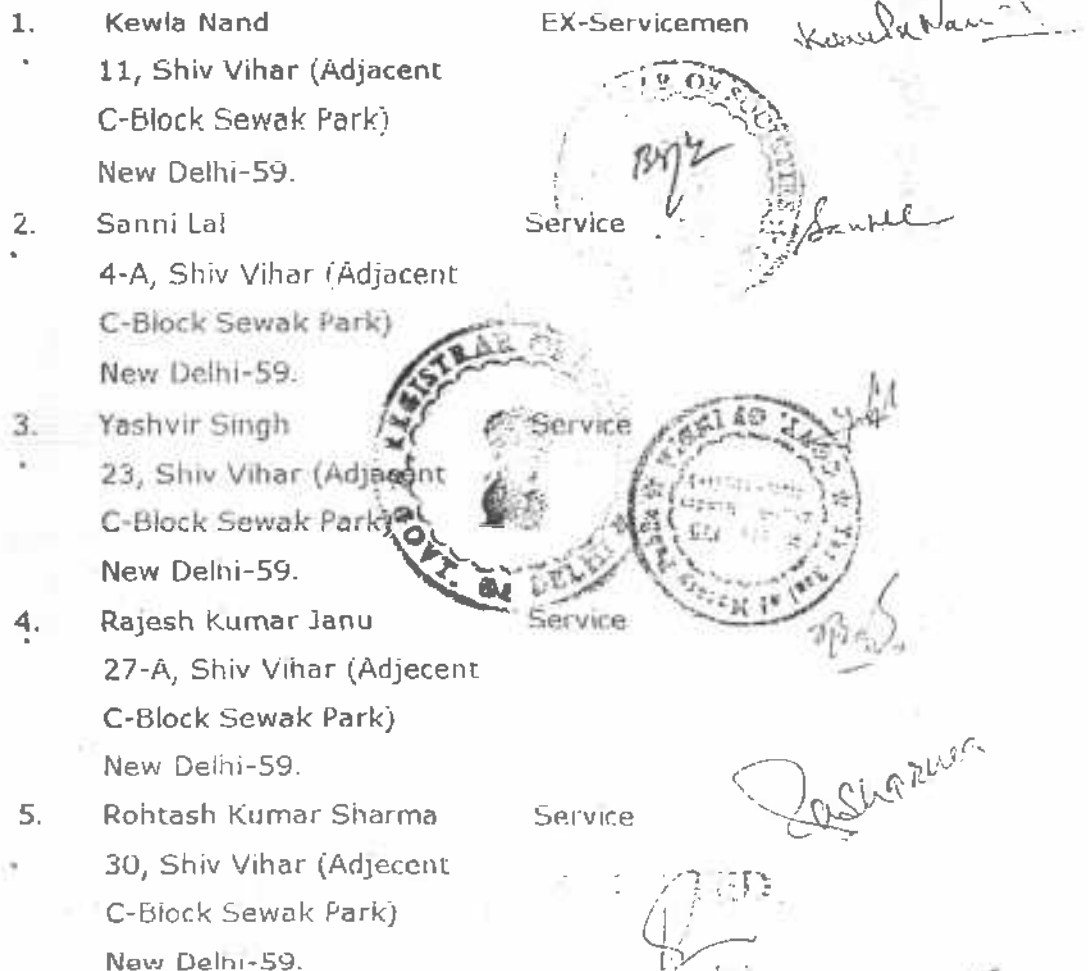 1. Kewla Nand EX-Servicemen Kewla Nand
11, Shiv Vihar (Adjacent
C-Block Sewak Park)
New Delhi-59.
2. Sanni Lal Service
4-A, Shiv Vihar (Adjacent
C-Block Sewak Park)
New Delhi-59.
3. Yashvir Singh Service
23, Shiv Vihar (Adjacent
C-Block Sewak Park)
New Delhi-59.
4. Rajesh Kumar Janu Service
27-A, Shiv Vihar (Adjecent
C-Block Sewak Park)
New Delhi-59.
5. Rohtash Kumar Sharma Service
30, Shiv Vihar (Adjecent
C-Block Sewak Park)
New Delhi-59.
REGISTRAR OF
GOVT. OF DELHI